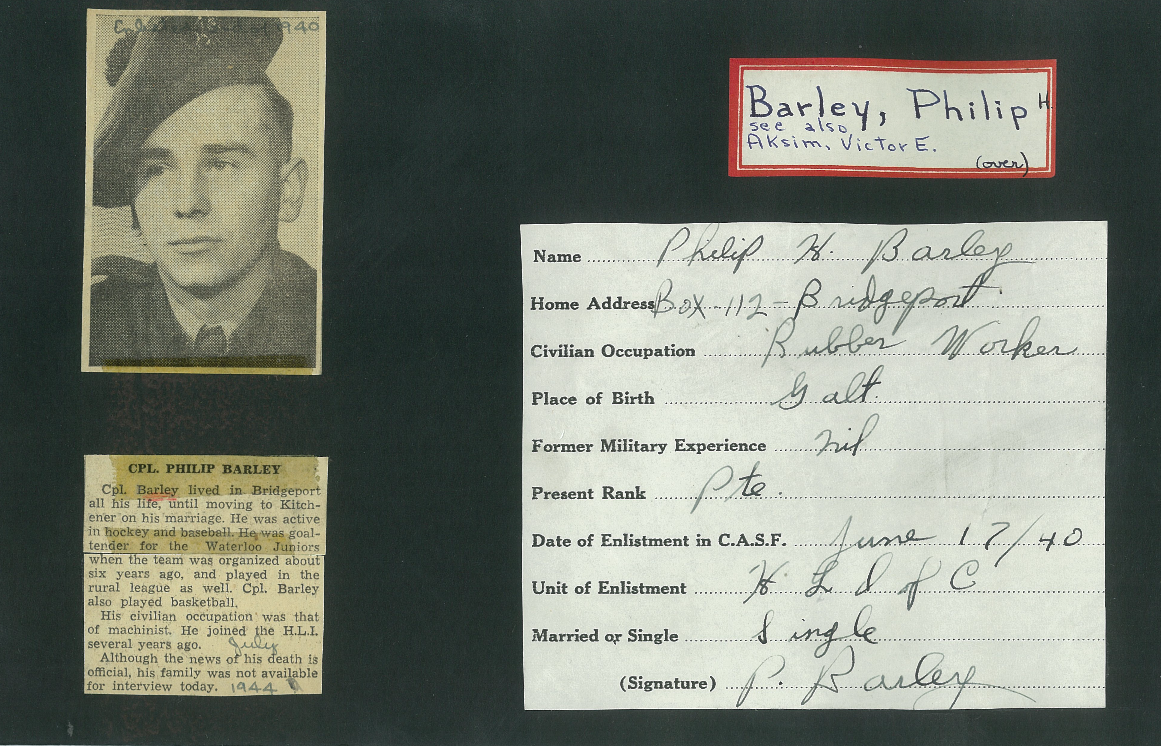 Enlisted 1940
Barley, Philip H.
see also
Aksim, Victor E.
(over)
Name Philip H. Barley
Home Address Box-112-Bridgeport
Civilian Occupation Rubber Worker
Place of Birth Galt
Former Military Experience nil
Present Rank Pte.
Date of Enlistment in C.A.S.F. June 17/40
Unit of Enlistment H L I of C
Married or Single Single
(Signature) P. Barley
CPL. PHILIP BARLEY
Cpl. Barley lived in Bridgeport
all his life, until moving to Kitch-
ener on his marriage. He was active
in hockey and baseball. He was goal-
tender for the Waterloo Juniors
when the team was organized about
six years ago, and played in the
rural league as well. Cpl. Barley
also played basketball.
His civilian occupation was that
of machinist. He joined the H.L.I.
several years ago. July
Although the news of his death is
official, his family was not available
for interview today. 1944